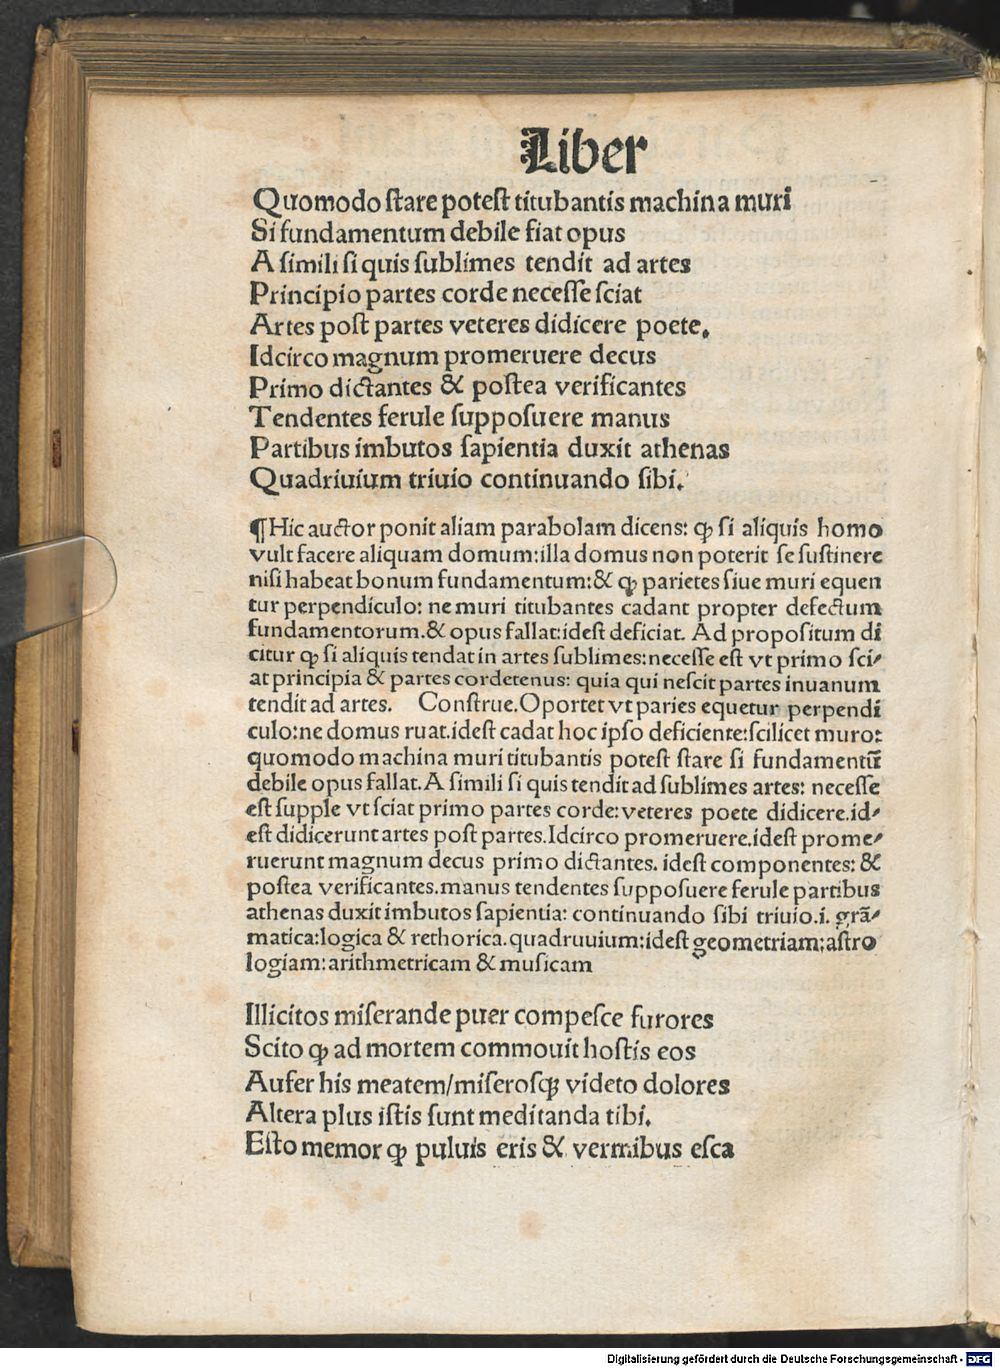 Liber
Quomodo ſtare poteſt titubantis machina muri
Si fundamentum debile fiat opus
A ſimili ſi quis ſublimes tendit ad artes
Principio partes corde neceſſe ſciat
Artes poſt partes veteres didicere poete.
Idcirco magnum promeruere decus
Primo dictantes & poſtea verificantes
Tendentes ferule ſuppoſuere manus
Partibus imbutos ſapientia duxit athenas
Quadriuium triuio continuando ſibi.
¶Hic auctor ponit aliam parabolam dicens: ꝙ ſi aliquis homo
vult facere aliquam domum:illa domus non poterit ſe ſuſtinere
niſi habeat bonum fundamentum:& ꝙ parietes ſiue muri equen
tur perpendiculo: ne muri titubantes cadant propter defectum
fundamentorum.& opus fallat:ideſt deficiat. Ad propoſitum di
citur ꝙ ſi aliquis tendat in artes ſublimes:neceſſe eſt vt primo ſci⸗
at principia & partes cordetenus: quia qui neſcit partes inuanum
tendit ad artes. Conſtrue.Oportet vt paries equetur perpendi
culo:ne domus ruat.ideſt cadat hoc ipſo deficiente:ſcilicet muro:
quomodo machina muri titubantis poteſt ſtare ſi fundamentū
debile opus fallat.A ſimili ſi quis tendit ad ſublimes artes: neceſſe
eſt ſupple vt ſciat primo partes corde:veteres poete didicere.id⸗
eſt didicerunt artes poſt partes.Idcirco promeruere.ideſt prome⸗
ruerunt magnum decus primo dictantes. ideſt componentes: &
poſtea verificantes.manus tendentes ſuppoſuere ferule partibus
athenas duxit imbutos ſapientia: continuando ſibi triuio.i. grā⸗
matica:logica & rethorica.quadruuium:ideſt geometriam:aſtro
logiam:arithmetricam & muſicam
Illicitos miſerande puer compeſce furores
Scito ꝙ ad mortem commouit hoſtis eos
Aufer his meatem/miſeroſqꝫ videto dolores
Altera plus iſtis ſunt meditanda tibi.
Eſto memor ꝙ puluis eris & vermibus eſca
Digitalisierung gefördert durch die Deutsche Forschungsgemeinschaft - DFG